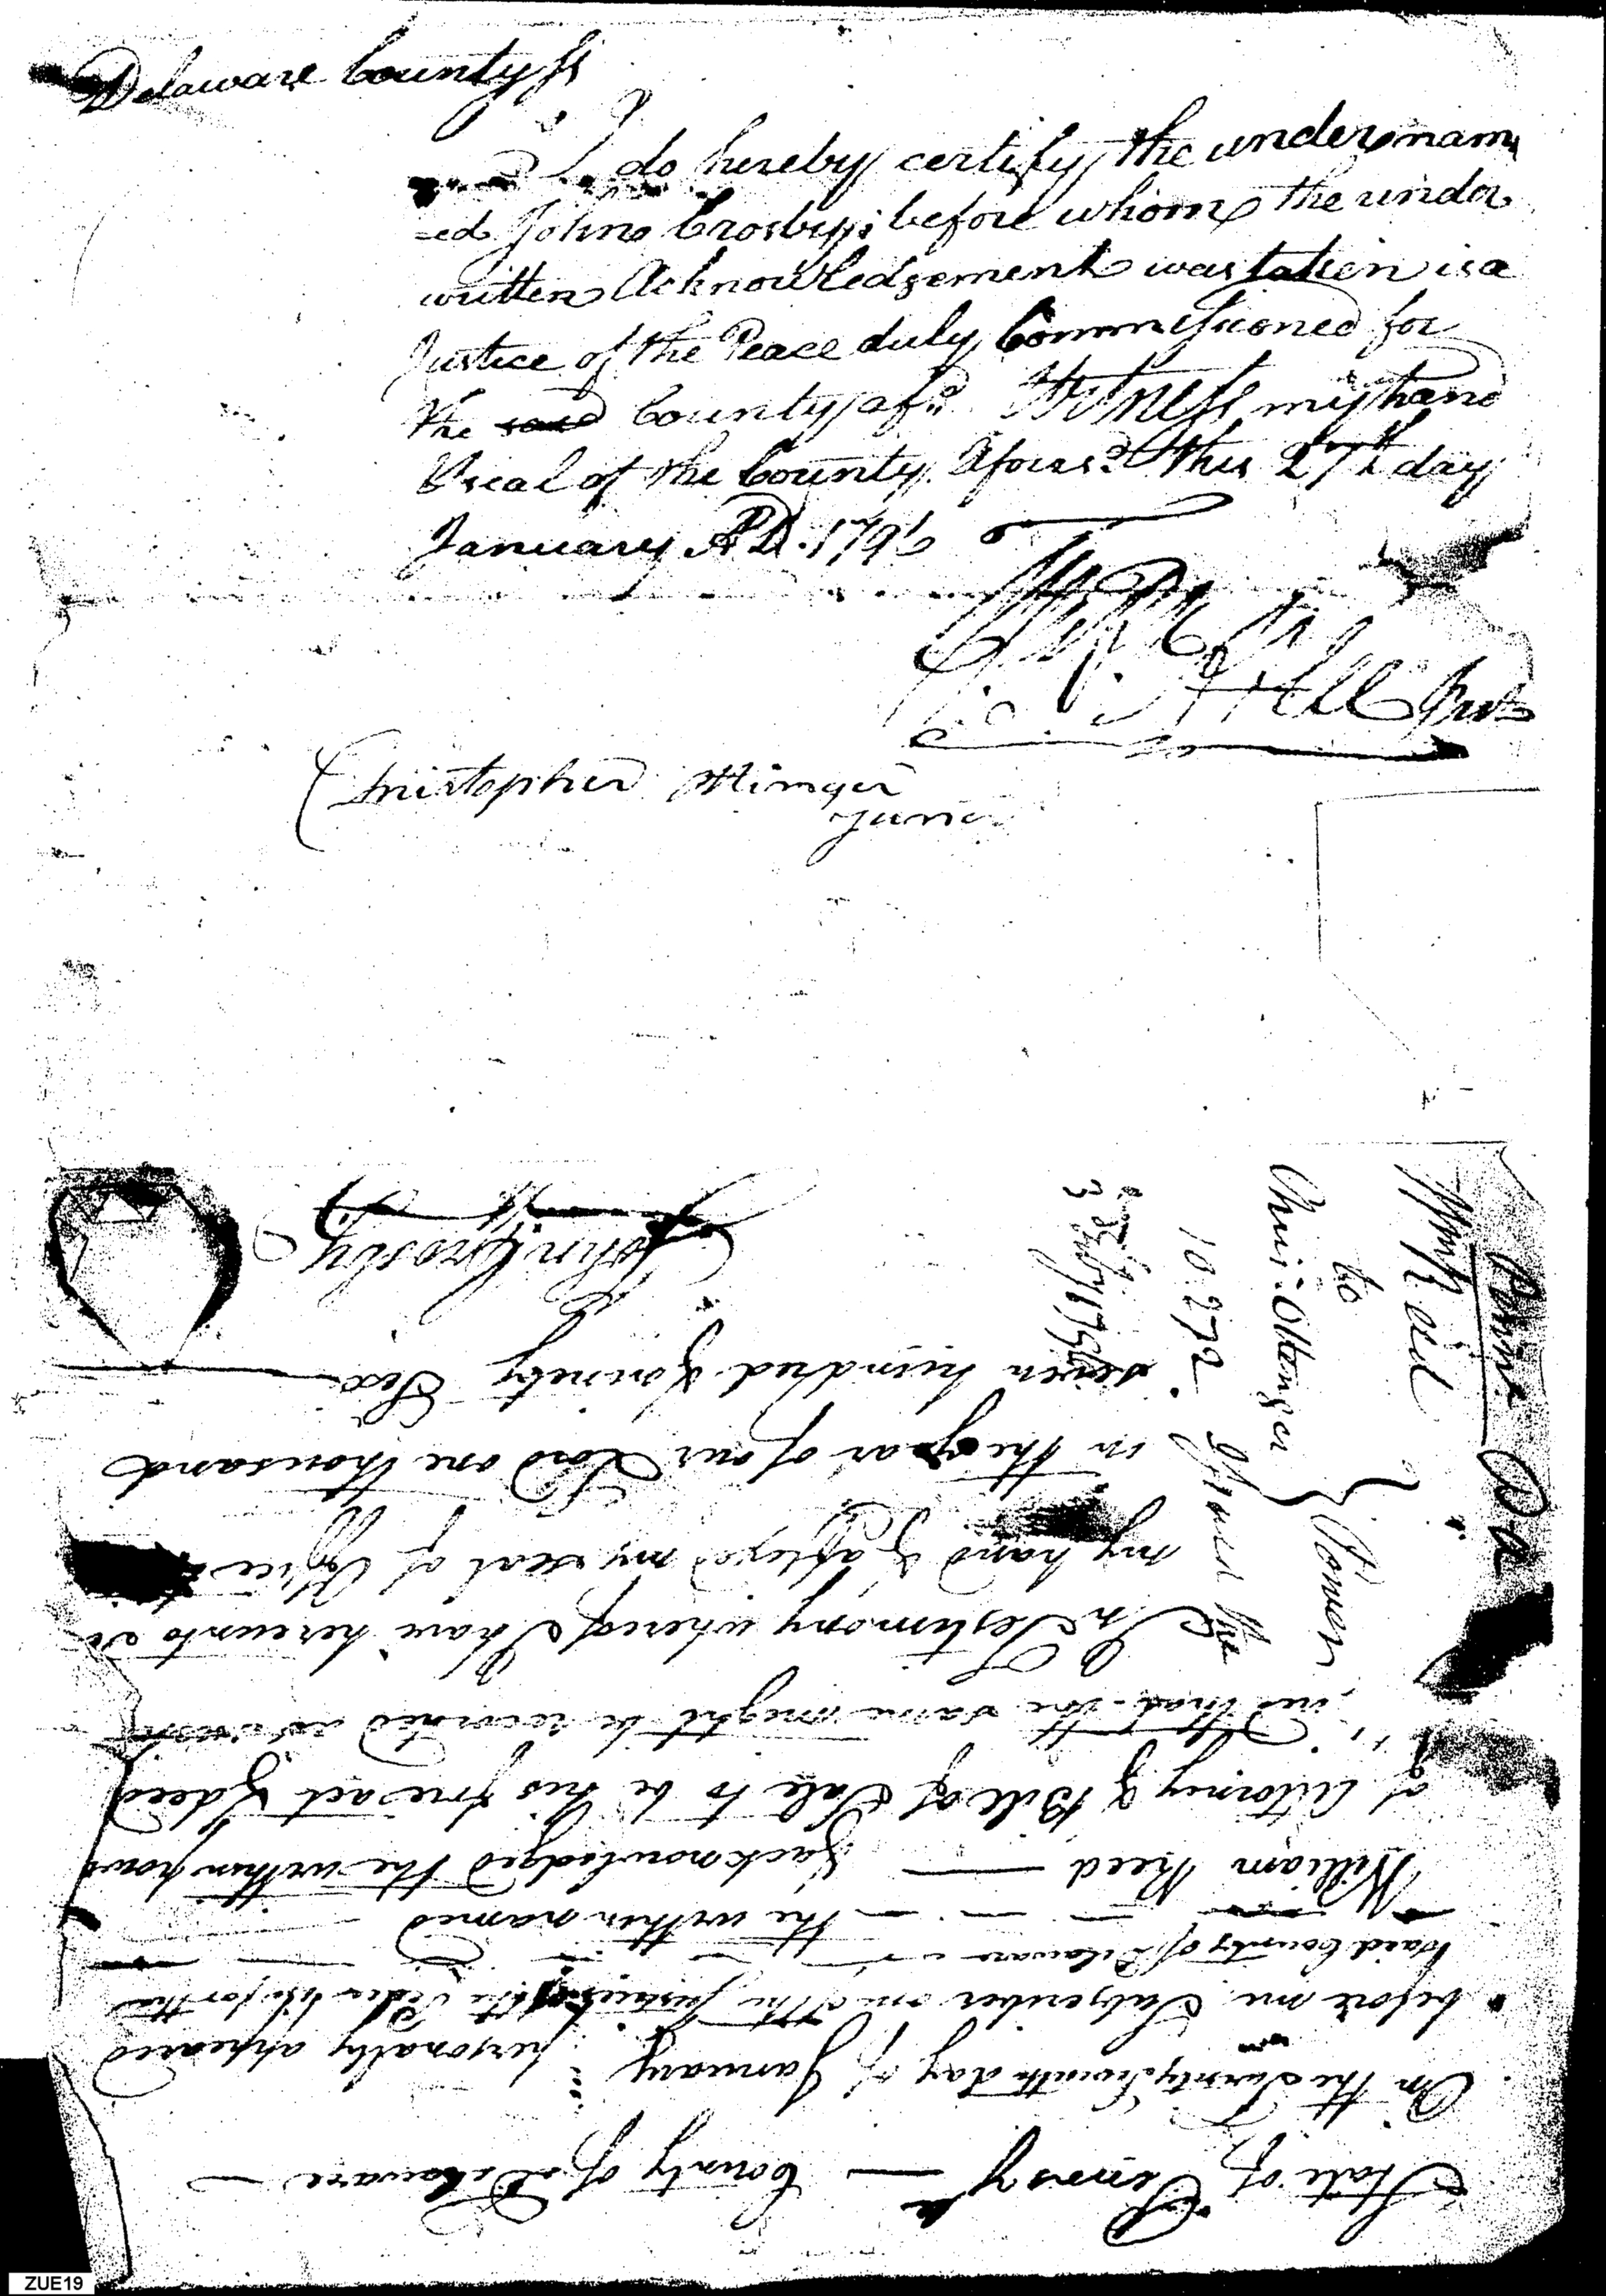 Delaware County ss
I do hereby certify the undernam
-ed John Crosby before whom the under
written Acknowledgement was taken is a
Justice of the Peace duly Commissioned for
the said County afsd. Witness my hand
& seal of the County Aforesd. this 27th day
January A.D. 1796
Christopher Ottinger
Junr
State of Pennsya — County of Delaware —
On the Twenty Seventh day of January personally appeared
before me Subscriber one of the Justices of the Peace for the
said County of Delaware
the within named
William Reed — & acknowledged the within power
of Attorney & Bill of Sale to be his free act & deed
and that the same might be recorded as such
In Testimony whereof I have hereunto set
my hand & affixed my seal of Office
in the year of our Lord one thousand
seven hundred & ninety Six
John Crosby
Penna
Wm Reid
to
Chris. Ottenger
} Power
10.272
3 Feby 1796
ZUE19